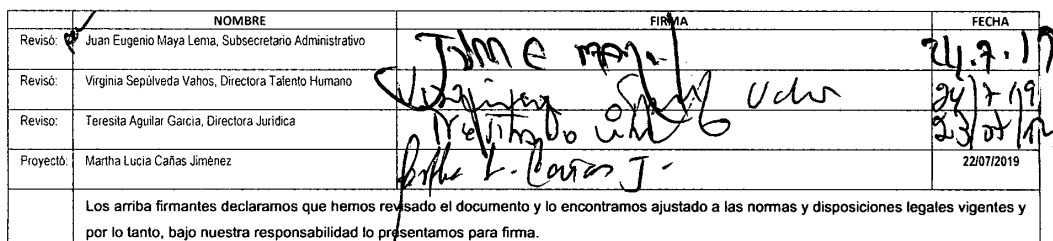 NOMBRE FIRMA FECHA
Revisó: Juan Eugenio Maya Lema, Subsecretario Administrativo
Revisó: Virginia Sepúlveda Vahos, Directora Talento Humano 24/7/19
Reviso: Teresita Aguilar Garcia, Directora Jurídica
Proyectó: Martha Lucia Cañas Jiménez Martha L. Cañas J. 22/07/2019
Los arriba firmantes declaramos que hemos revisado el documento y lo encontramos ajustado a las normas y disposiciones legales vigentes y
por lo tanto, bajo nuestra responsabilidad lo presentamos para firma.